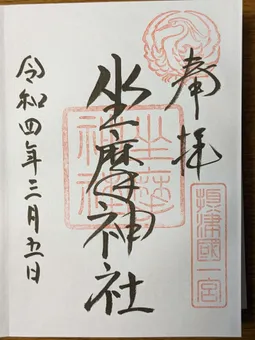 奉拝
摂津國一宮
坐摩神社
坐摩神社
令和四年三月五日